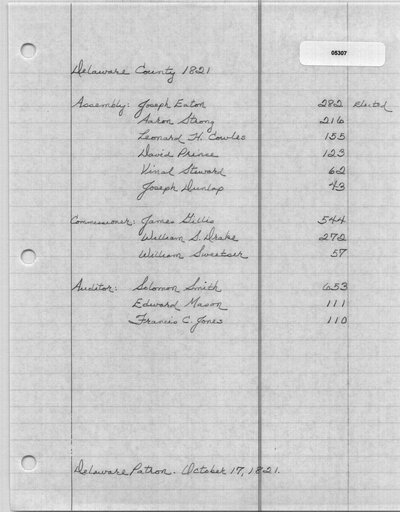 05307
Delaware County 1821
Assembly: Joseph Eaton 282 Elected
Aaron Strong 216
Leonard H. Cowles 155
David Prince 123
Vinal Steward 62
Joseph Dunlap 43
Commissioner: James Gillis 544
William S. Drake 272
William Sweetser 57
Auditor: Solomon Smith 653
Edward Mason 111
Francis C. Jones 110
Delaware Patron. October 17, 1821.